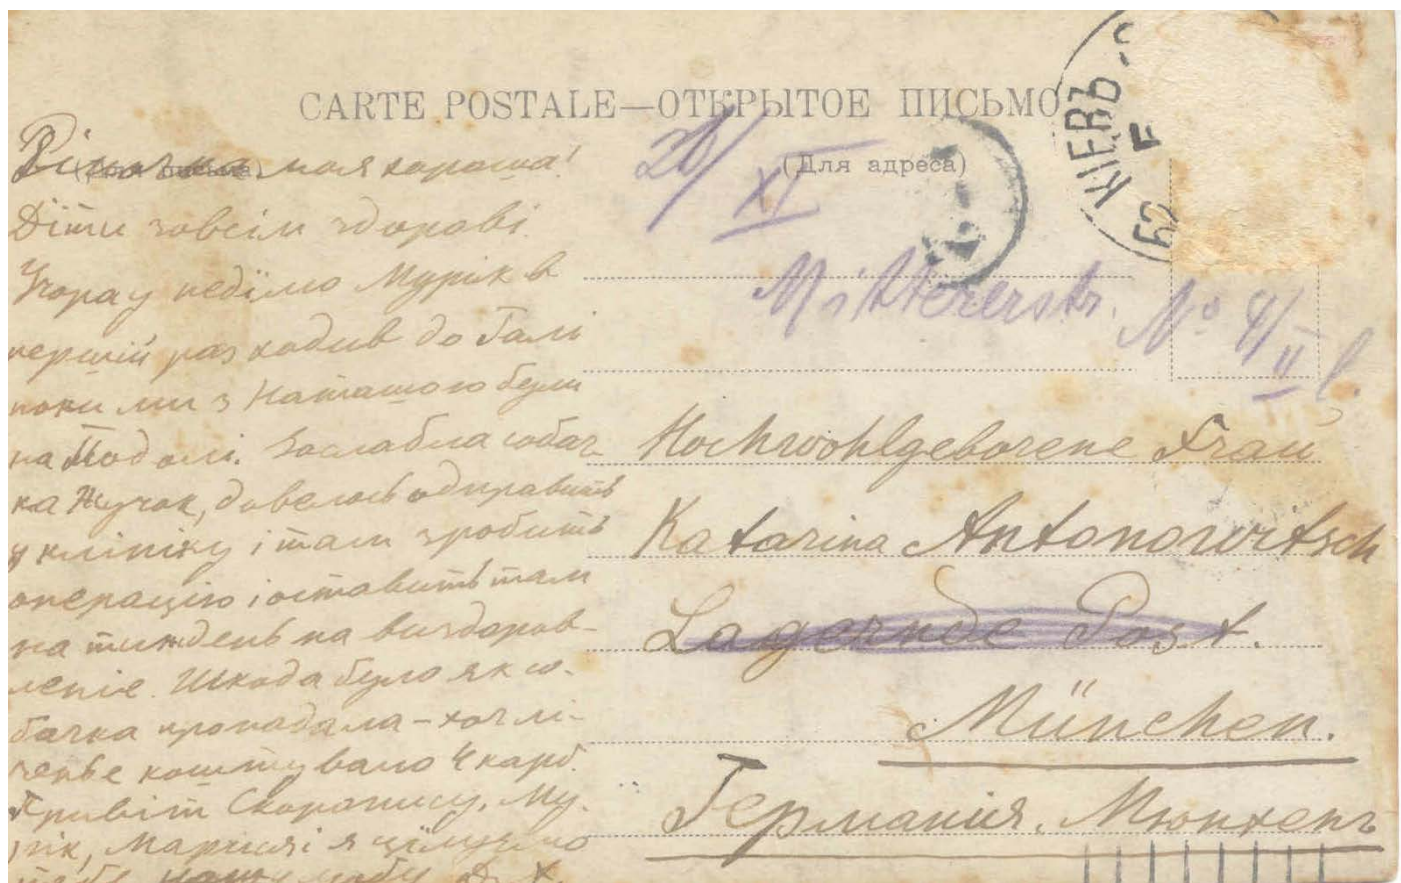 CARTE POSTALE—ОТКРЫТОЕ ПИСЬМО
(Для адреса)
КІЕВЪ
20/XI
моя хороша!
Діти зовсім здорові.
Учора у неділю Мурік в
перший раз ходив до Галі
поки ми з Наташою були
на Подолі. Заслабла собач
ка Жучок, довелось одправить
у клініку і там зробить
операцію і оставить там
на тиждень на виздоров-
леніє. Шкода було як со-
бачка пропадала – хоч лі-
ченьє коштувало 4 карб.
Привіт Скоропису. Му-
рік, Маруся і я цілуємо
тебе нашу любу
Mittererstr. № 4/II l.
Hochwohlgeborene Frau
Katarina Antonowitsch
Lagernde Post.
München.
Германия. Мюнхенъ